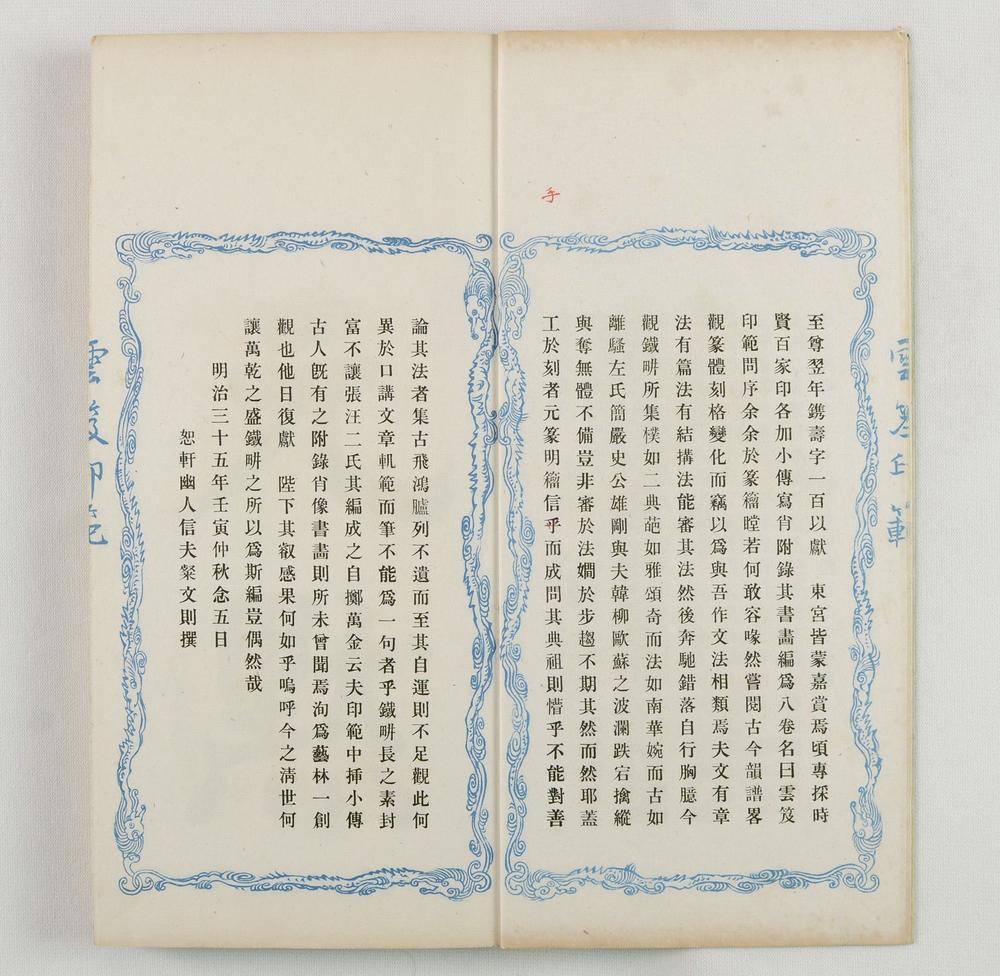 手
至尊翌年鐫壽字一百以獻　東宮皆蒙嘉賞焉頃專採時
賢百家印各加小傳寫肖附錄其書畵編爲八卷名曰雲笈
印範問序余余於篆籀瞠若何敢容喙然嘗閱古今韻譜畧
觀篆體刻格變化而竊以爲與吾作文法相類焉夫文有章
法有篇法有結搆法能審其法然後奔馳錯落自行胸臆今
觀鐵畊所集樸如二典葩如雅頌奇而法如南華婉而古如
離騷左氏簡嚴史公雄剛與夫韓柳歐蘇之波瀾跌宕擒縱
與奪無體不備豈非審於法嫺於步趨不期其然而然耶蓋
工於刻者元篆明籀信乎而成問其典祖則懵乎不能對善
論其法者集古飛鴻臚列不遺而至其自運則不足觀此何
異於口講文章軌範而筆不能爲一句者乎鐵畊長之素封
富不讓張汪二氏其編成之自擲萬金云夫印範中揷小傳
古人旣有之附錄肖像書畵則所未曾聞焉洵爲藝林一創
觀也他日復獻　陛下其叡感果何如乎嗚呼今之淸世何
讓萬乾之盛鐵畊之所以爲斯編豈偶然哉
明治三十五年壬寅仲秋念五日
恕軒幽人信夫粲文則撰
雲笈印範